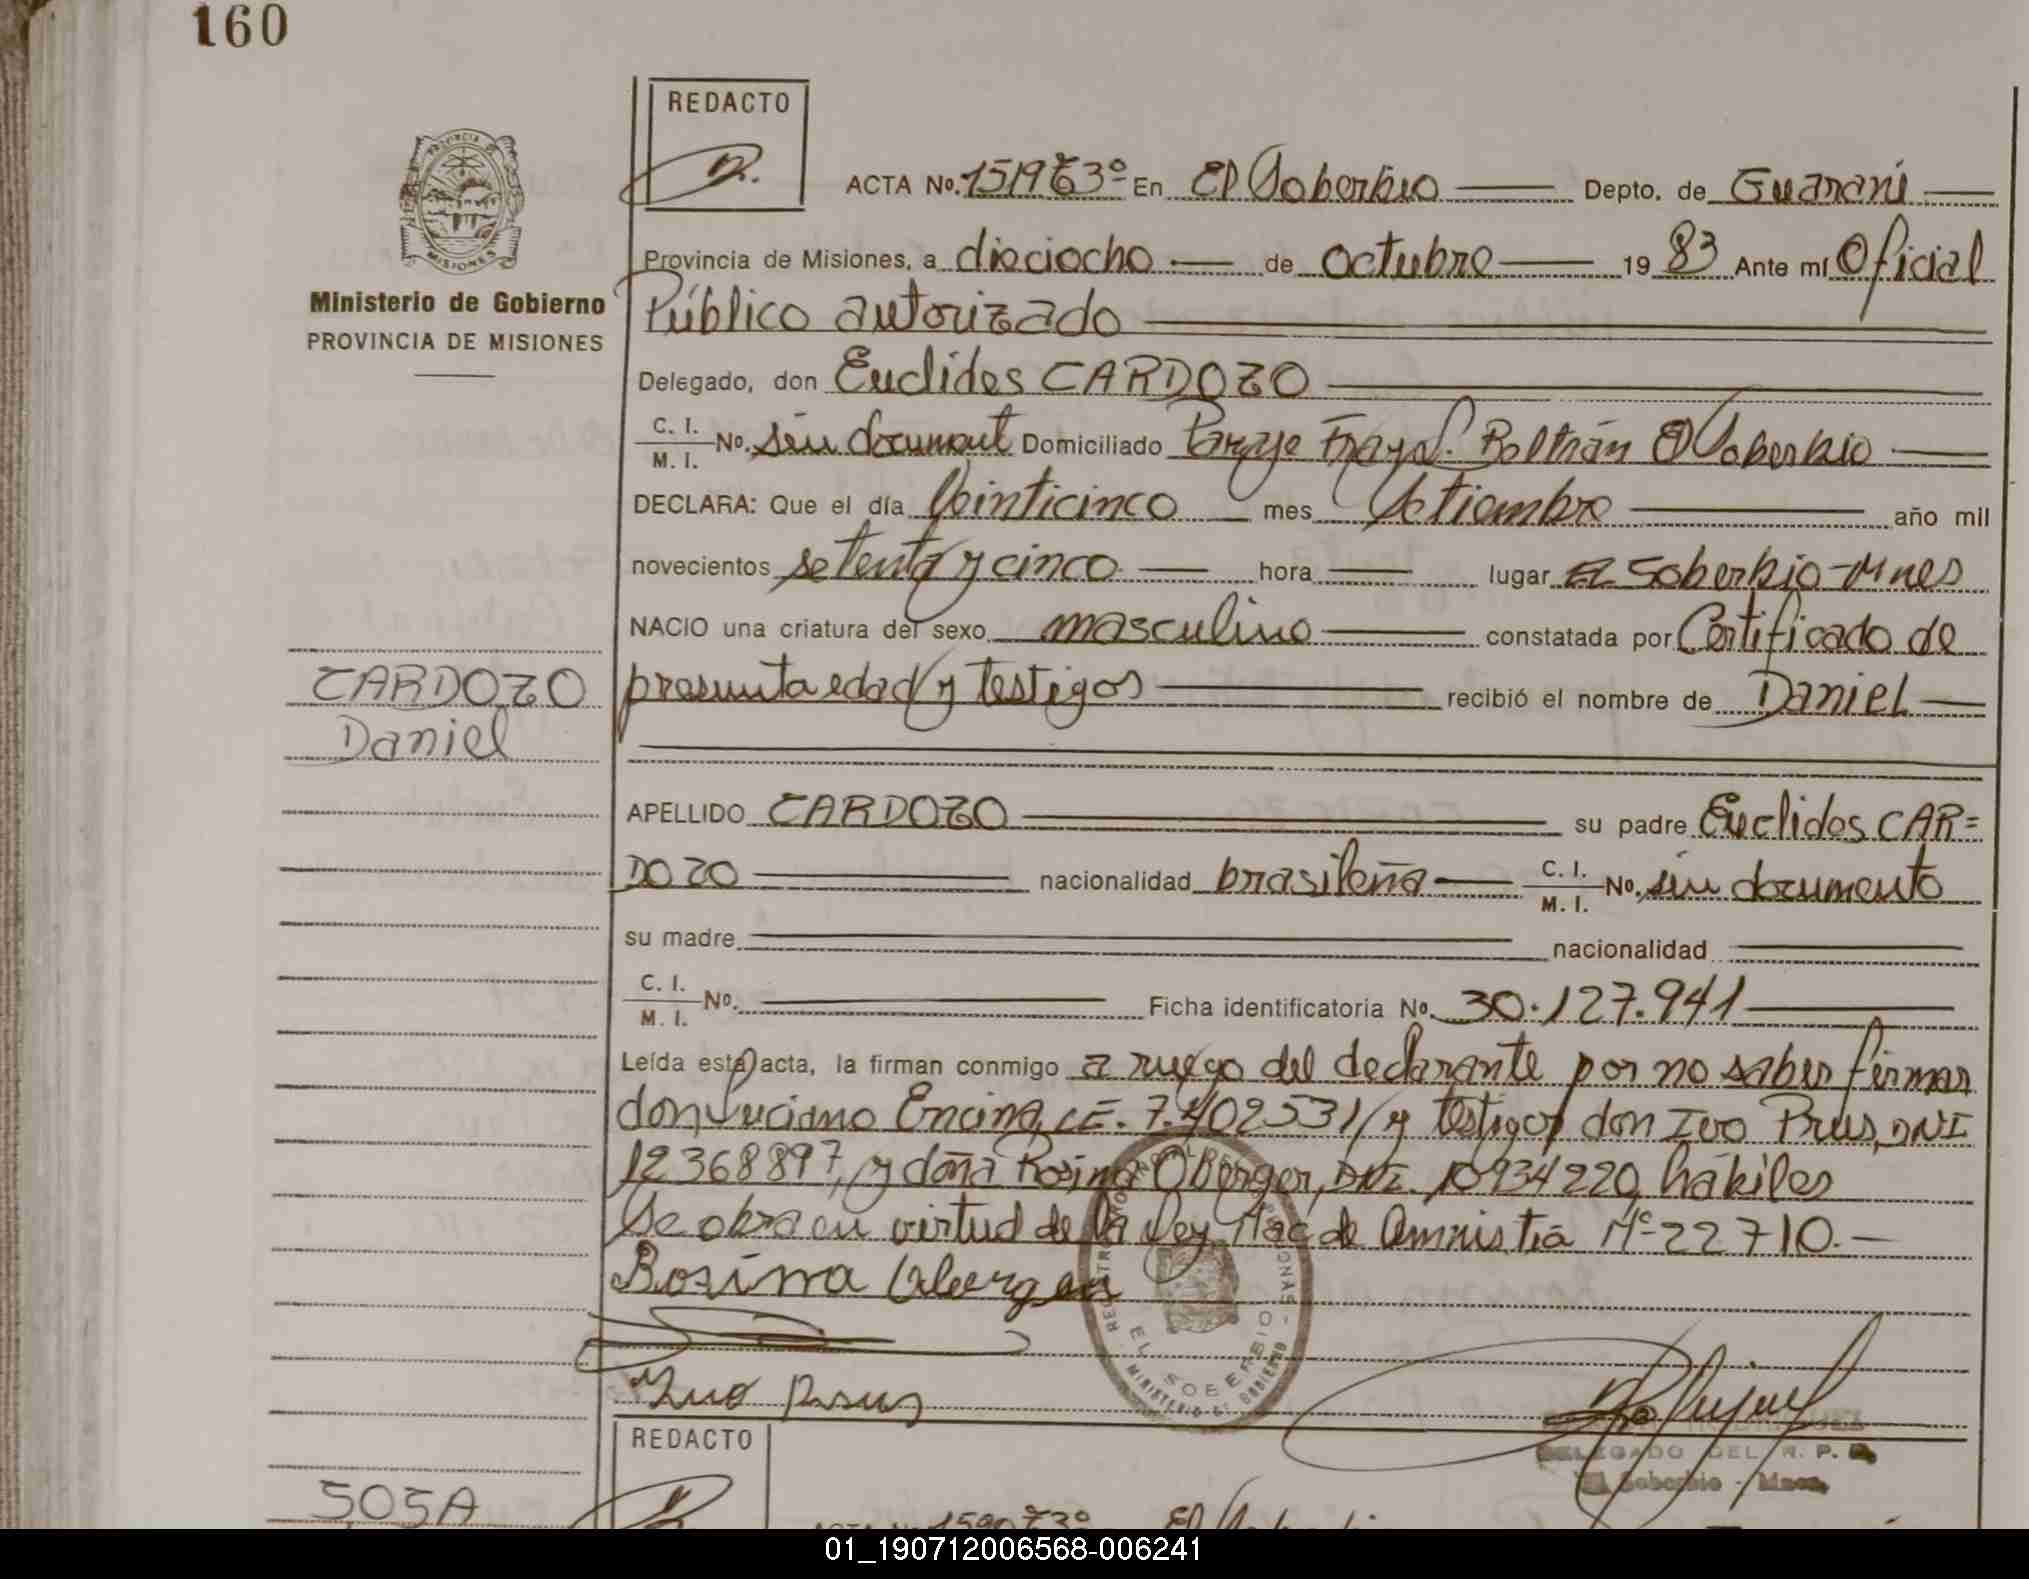 160
REDACTO
ACTA No. 1519 T3º En El Soberbio Depto. de Guaraní
Provincia de Misiones, a dieciocho de octubre 19 83 Ante mí Oficial
Público autorizado
Ministerio de Gobierno
PROVINCIA DE MISIONES
Delegado, don Euclides CARDOZO
C. I. M. I. No. sin document Domiciliado Paraje Fray L. Beltrán El Soberbio
DECLARA: Que el día Veinticinco mes Setiembre año mil
novecientos setenta y cinco hora lugar El Soberbio-Mnes
NACIO una criatura del sexo masculino constatada por Certificado de
presunta edad y testigos recibió el nombre de Daniel
CARDOZO
Daniel
APELLIDO CARDOZO su padre Euclides CAR=
DOZO nacionalidad brasileña C. I. M. I. No. sin documento
su madre nacionalidad
C. I. M. I. No. Ficha identificatoria No. 30.127.941
Leída esta acta, la firman conmigo a ruego del declarante por no saber firmar
don Luciano Encina, CE. 7.402531 y testigos don Ivo Prus, DNI
12368897, y doña Rosina Oberger, DNI. 10934220, hábiles
Se obra en virtud de la Ley Nac de Amnistia Nº 22710.-
Rosina Oberger
Ivo Prus
EL SOBERBIO
MINISTERIO DE GOBIERNO
DELEGADO DEL R. P.
El Soberbio - Mnes.
REDACTO
SOSA
ACTA No. 1520 T3º El Soberbio
01_190712006568-006241